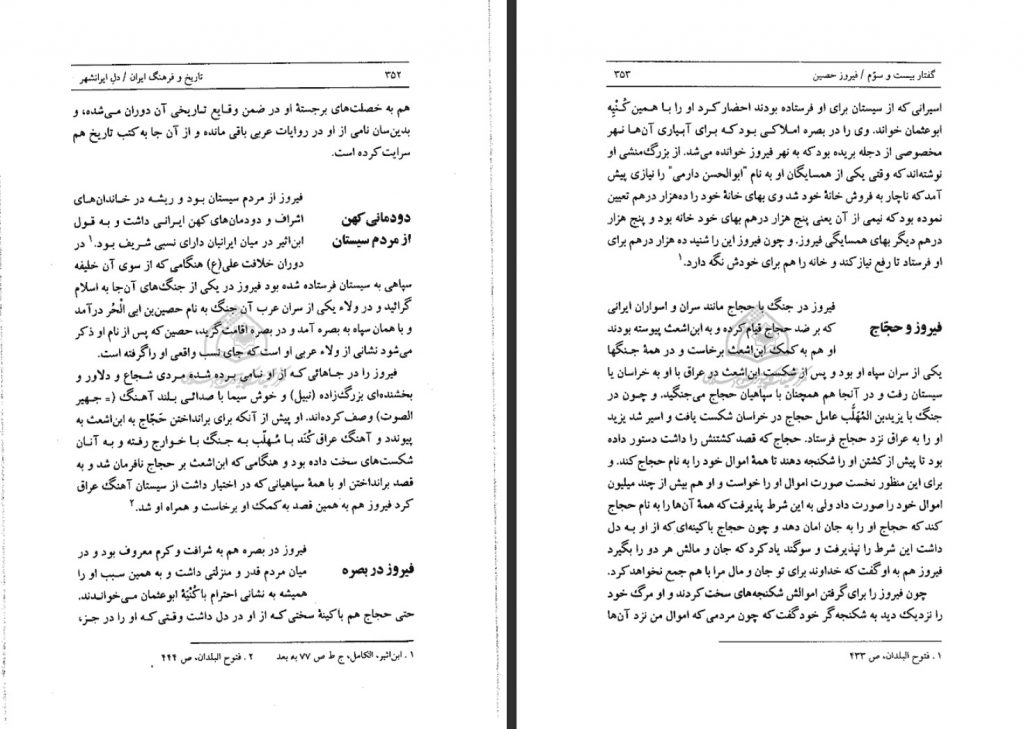 ۳۵۲
تاریخ و فرهنگ ایران / دل ایرانشهر
هم به خصلت‌های برجستهٔ او در ضمن وقایع تاریخی آن دوران می‌شده، و
بدین‌سان نامی از او در روایات عربی باقی مانده و از آن جا به کتب تاریخ هم
سرایت کرده است.
دودمانی کهن
از مردم سیستان
فیروز از مردم سیستان بود و ریشه در خاندان‌های
اشراف و دودمان‌های کهن ایرانی داشت و به قول
ابن‌اثیر در میان ایرانیان دارای نسبی شریف بود.۱ در
دوران خلافت علی(ع) هنگامی که از سوی آن خلیفه
سپاهی به سیستان فرستاده شده بود فیروز در یکی از جنگ‌های آن‌جا به اسلام
گرائید و در ولاء یکی از سران عرب آن جنگ به نام حصین‌بن ابی الْحُر درآمد
و با همان سپاه به بصره آمد و در بصره اقامت گزید، حصین که پس از نام او ذکر
می‌شود نشانی از ولاء عربی او است که جای نسب واقعی او را گرفته است.
فیروز را در جاهائی که از او نامی برده شده مردی شجاع و دلاور و
بخشنده‌ای بزرگ‌زاده (نبیل) و خوش سیما با صدائی بلند آهنگ (= جهیر
الصوت) وصف کرده‌اند. او پیش از آنکه برای برانداختن حَجّاج به ابن‌اشعث به
پیوندد و آهنگ عراق کُنَد با مُهلّب به جنگ با خوارج رفته و به آنان
شکست‌های سخت داده بود و هنگامی که ابن‌اشعث بر حجاج نافرمان شد و به
قصد برانداختن او با همهٔ سپاهیانی که در اختیار داشت از سیستان آهنگ عراق
کرد فیروز هم به همین قصد به کمک او برخاست و همراه او شد.۲
فیروز در بصره
فیروز در بصره هم به شرافت و کرم معروف بود و در
میان مردم قدر و منزلتی داشت و به همین سبب او را
همیشه به نشانی احترام با کُنْیَهٔ ابوعثمان می‌خواندند.
حتی حجاج هم با کینهٔ سختی که از او در دل داشت وقتی که او را در جزء،
۱. ابن‌اثیر، الکامل، ج ط ص ۷۷ به بعد
۲. فتوح البلدان، ص ۴۴۴
گفتار بیست و سوّم / فیروز حصین
۳۵۳
اسیرانی که از سیستان برای او فرستاده بودند احضار کرد او را با همین کُنْیِه
ابوعثمان خواند. وی را در بصره املاکی بود که برای آبیاری آن‌ها نهر
مخصوصی از دجله بریده بود که به نهر فیروز خوانده می‌شد. از بزرگ‌منشی او
نوشته‌اند که وقتی یکی از همسایگان او به نام "ابوالحسن دارمی" را نیازی پیش
آمد که ناچار به فروش خانهٔ خود شد وی بهای خانهٔ خود را ده‌هزار درهم تعیین
نموده بود که نیمی از آن یعنی پنج هزار درهم بهای خود خانه بود و پنج هزار
درهم دیگر بهای همسایگی فیروز. و چون فیروز این را شنید ده هزار درهم برای
او فرستاد تا رفع نیاز کند و خانه را هم برای خودش نگه دارد.۱
فیروز و حجّاج
فیروز در جنگ با حجاج مانند سران و اسواران ایرانی
که بر ضد حجاج قیام کرده و به ابن‌اشعث پیوسته بودند
او هم به کمک ابن‌اشعث برخاست و در همهٔ جنگها
یکی از سران سپاه او بود و پس از شکست ابن‌اشعث در عراق با او به خراسان یا
سیستان رفت و در آنجا هم همچنان با سپاهیان حجاج می‌جنگید. و چون در
جنگ با یزیدبن المُهَلَّب عامل حجاج در خراسان شکست یافت و اسیر شد یزید
او را به عراق نزد حجاج فرستاد. حجاج که قصد کشتنش را داشت دستور داده
بود تا پیش از کشتن او را شکنجه دهند تا همهٔ اموال خود را به نام حجاج کند. و
برای این منظور نخست صورت اموال او را خواست و او هم بیش از چند میلیون
اموال خود را صورت داد ولی به این شرط پذیرفت که همهٔ آن‌ها را به نام حجاج
کند که حجاج او را به جان امان دهد و چون حجاج با کینه‌ای که از او به دل
داشت این شرط را نپذیرفت و سوگند یاد کرد که جان و مالش هر دو را بگیرد
فیروز هم به او گفت که خداوند برای تو جان و مال مرا با هم جمع نخواهد کرد.
چون فیروز را برای گرفتن اموالش شکنجه‌های سخت کردند و او مرگ خود
را نزدیک دید به شکنجه‌گر خود گفت که چون مردمی که اموال من نزد آن‌ها
۱. فتوح البلدان، ص ۴۳۳